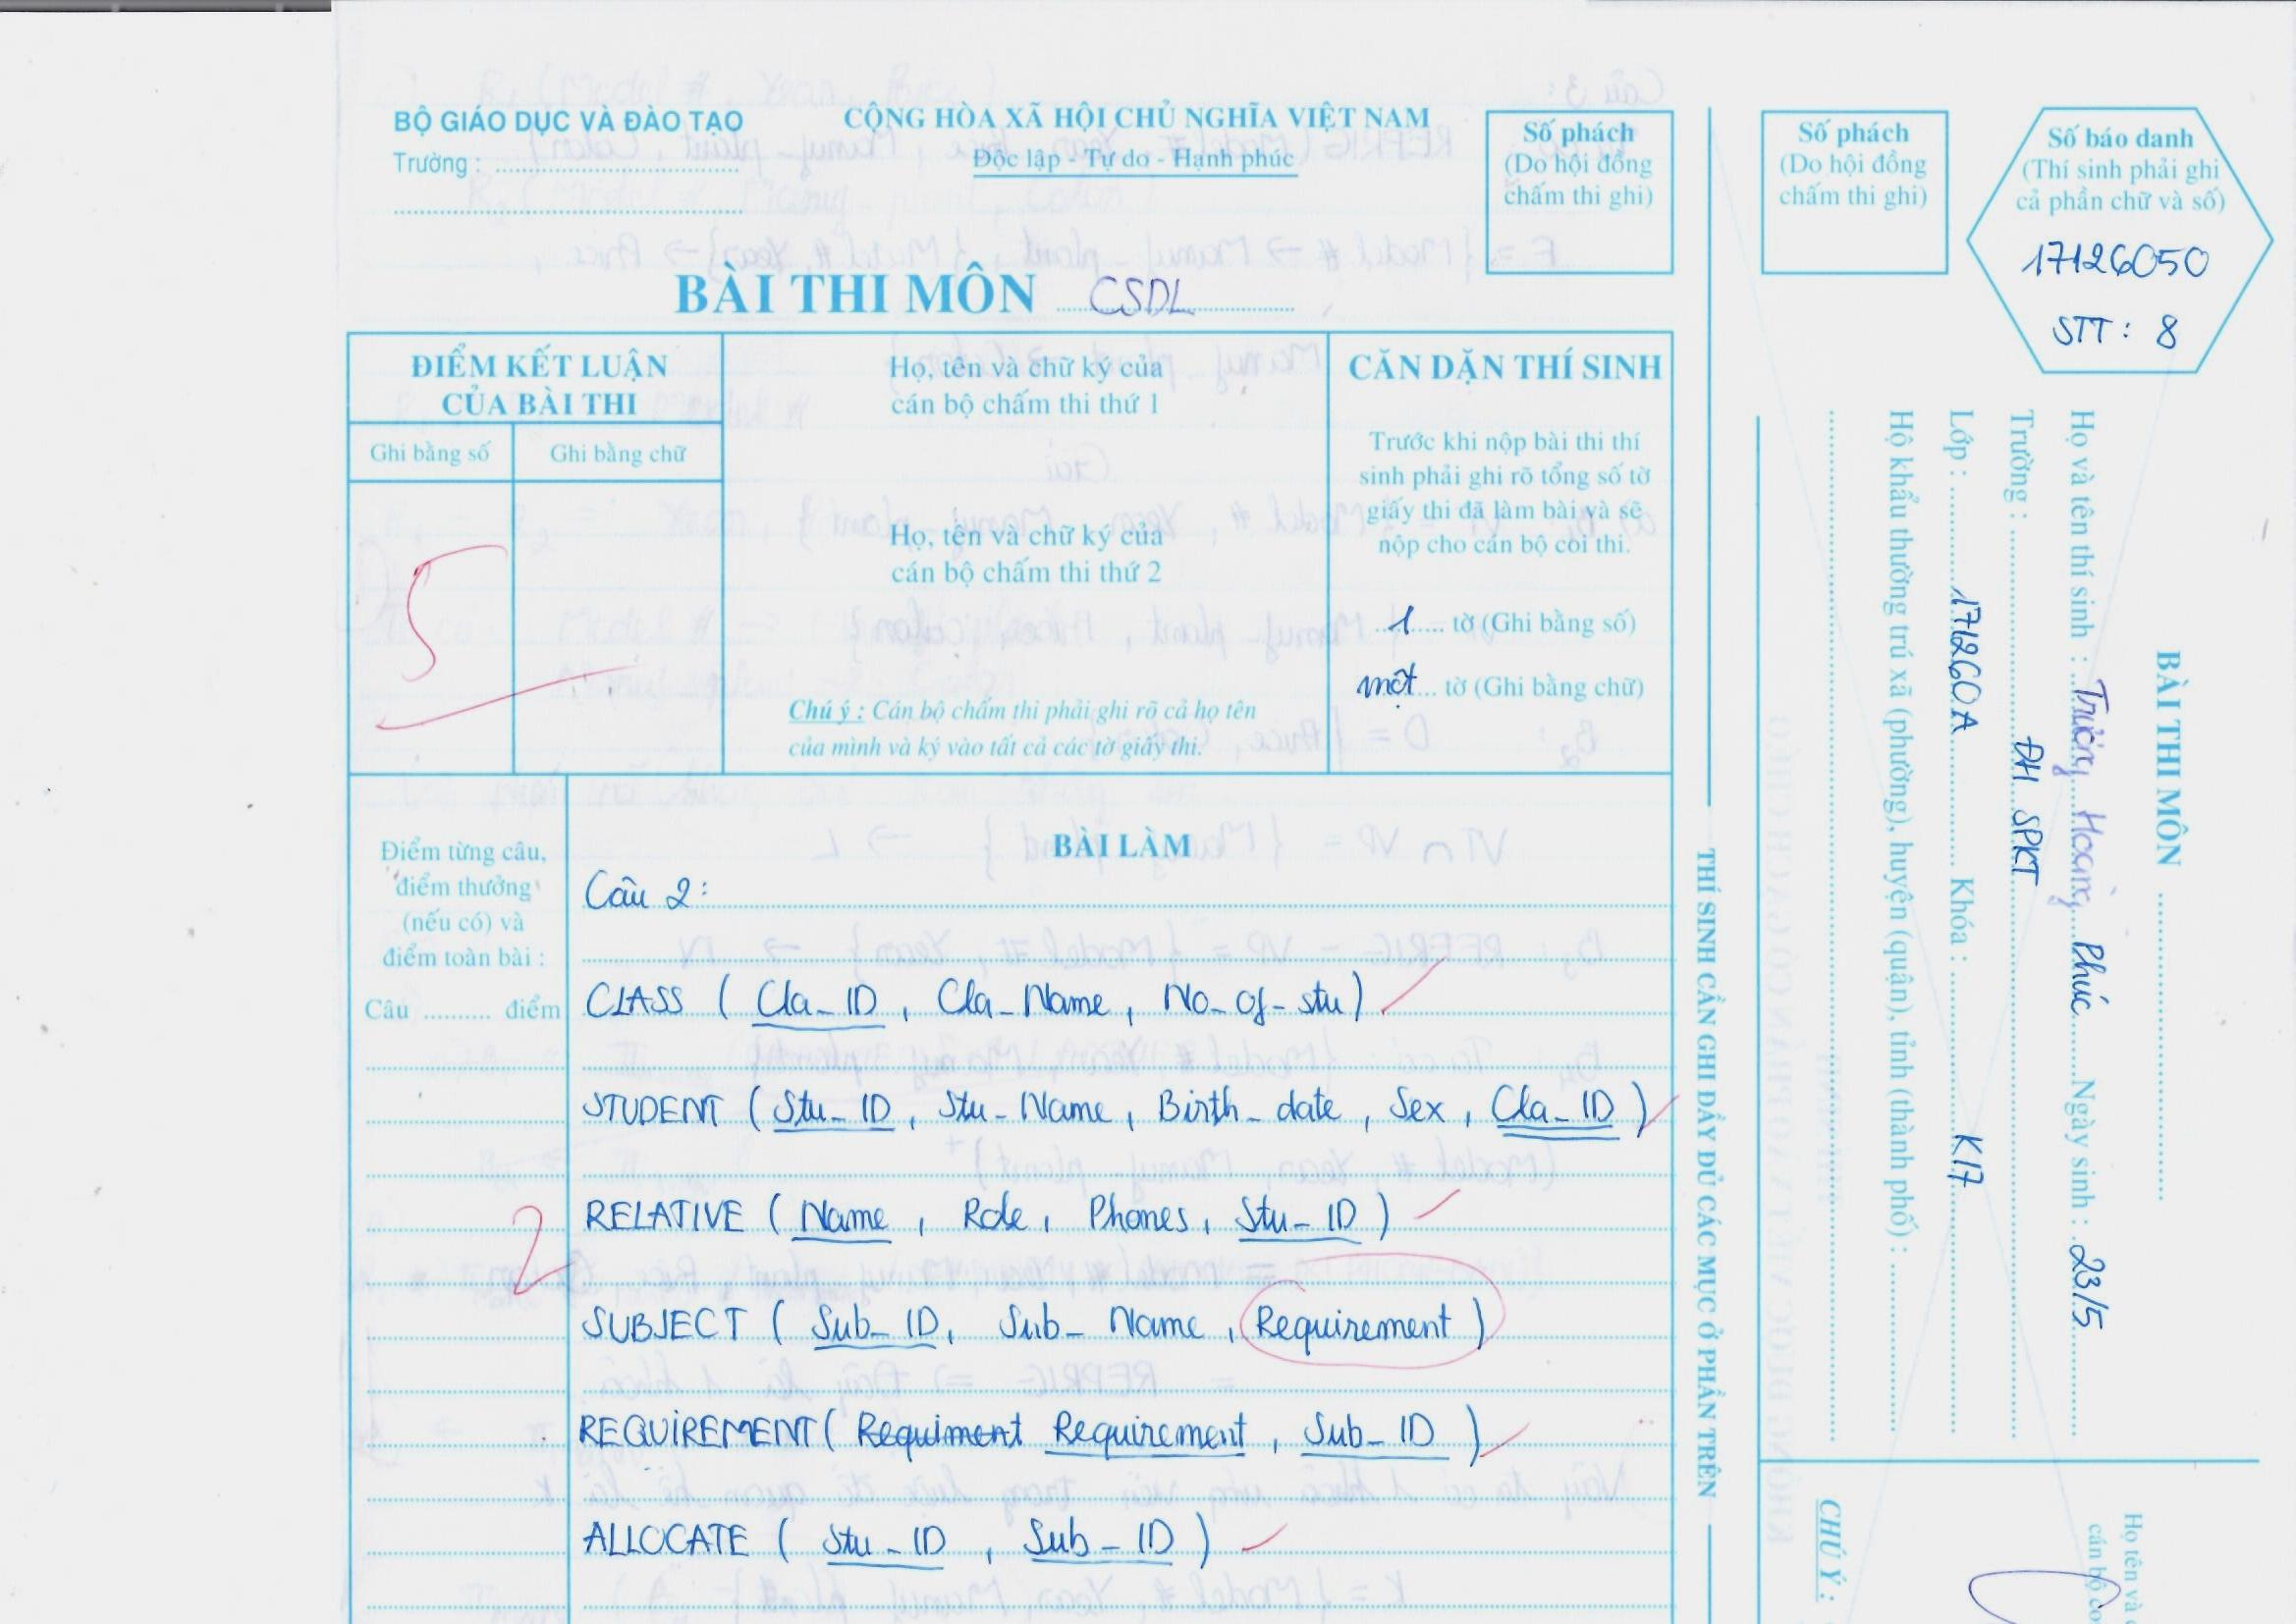 BỘ GIÁO DỤC VÀ ĐÀO TẠO
Trường :
CỘNG HÒA XÃ HỘI CHỦ NGHĨA VIỆT NAM
Độc lập - Tự do - Hạnh phúc
BÀI THI MÔN CSDL
Số phách
(Do hội đồng
chấm thi ghi)
ĐIỂM KẾT LUẬN
CỦA BÀI THI
Ghi bằng số
Ghi bằng chữ
5
Họ, tên và chữ ký của
cán bộ chấm thi thứ 1
Họ, tên và chữ ký của
cán bộ chấm thi thứ 2
Chú ý : Cán bộ chấm thi phải ghi rõ cả họ tên
của mình và ký vào tất cả các tờ giấy thi.
CĂN DẶN THÍ SINH
Trước khi nộp bài thi thí
sinh phải ghi rõ tổng số tờ
giấy thi đã làm bài và sẽ
nộp cho cán bộ coi thi.
1 tờ (Ghi bằng số)
một tờ (Ghi bằng chữ)
Điểm từng câu,
điểm thưởng
(nếu có) và
điểm toàn bài :
Câu .......... điểm
2
BÀI LÀM
Câu 2:
CLASS ( Cla_ID , Cla_Name , No_of_stu )
STUDENT ( Stu_ID , Stu_Name , Birth_date , Sex , Cla_ID )
RELATIVE ( Name , Role , Phones , Stu_ID )
SUBJECT ( Sub_ID , Sub_Name , Requirement )
REQUIREMENT ( Requiment Requirement , Sub_ID )
ALLOCATE ( Stu_ID , Sub_ID )
THÍ SINH CẦN GHI ĐẦY ĐỦ CÁC MỤC Ở PHẦN TRÊN
Số phách
(Do hội đồng
chấm thi ghi)
Số báo danh
(Thí sinh phải ghi
cả phần chữ và số)
17126050
STT : 8
BÀI THI MÔN
Họ và tên thí sinh : Trương Hoàng Phúc Ngày sinh : 23/5
Trường : ĐH SPKT
Lớp : 171260A Khóa : K17
Hộ khẩu thường trú xã (phường), huyện (quận), tỉnh (thành phố) :
CHÚ Ý :
Họ tên và
cán bộ co